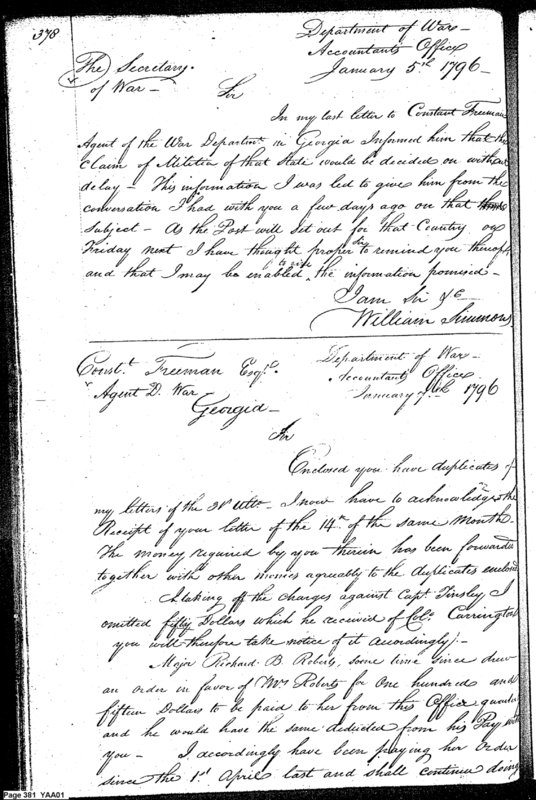 378
Department of War
Accountants Office
January 5th 1796
The Secretary
of War
Sir
In my last letter to Constant Freeman
Agent of the War Departmt. in Georgia Informed him that the
claim of Militia of that State would be decided on without
delay – This information I was led to give him from the
conversation I had with you a few days ago on that
subject – As the Post will set out for that Country on
Friday next I have thought proper Sir to remind you thereof
and that I may be enabled to give the information promised –
I am Sir &c
William Simmons
Const. Freeman Esqr.
Agent D. War
Georgia –
Department of War –
Accountants Office
January 7th 1796
Sir
Enclosed you have duplicates of
my letters of the 21st Ulto. – I now have to acknowledge the
Receipt of your letter of the 14th. of the same Month –
The money required by you therein has been forwarded
together with other monies agreeably to the duplicates enclosed
In taking off the charges against Capt. Tinsley I
omitted fifty Dollars which he received of Colo. Carrington
you will therefore take notice of it accordingly. –
Major Richard B. Roberts, some time since drew
an order in favor of Mrs Roberts for One hundred and
fifteen Dollars to be paid to her from this Office quarterly
and he would have the same deducted from his Pay with
you – I accordingly have been paying her Order
since the 1st April last and shall continue doing
Page 381 YAA01